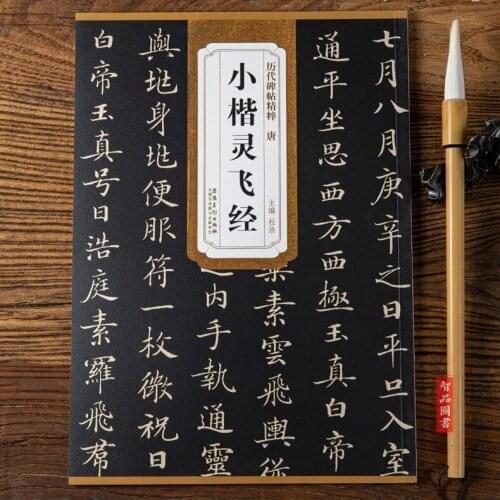 历代碑帖精粹 唐
小楷灵飞经
主编 杜浩
七月八月庚辛之日平旦入室
通平坐思西方西極玉真白帝
素雲飛輿從
之内手執通靈
輿地身地便服符一枚微祝曰
白帝玉真号曰浩庭素羅飛帬
智品圖書